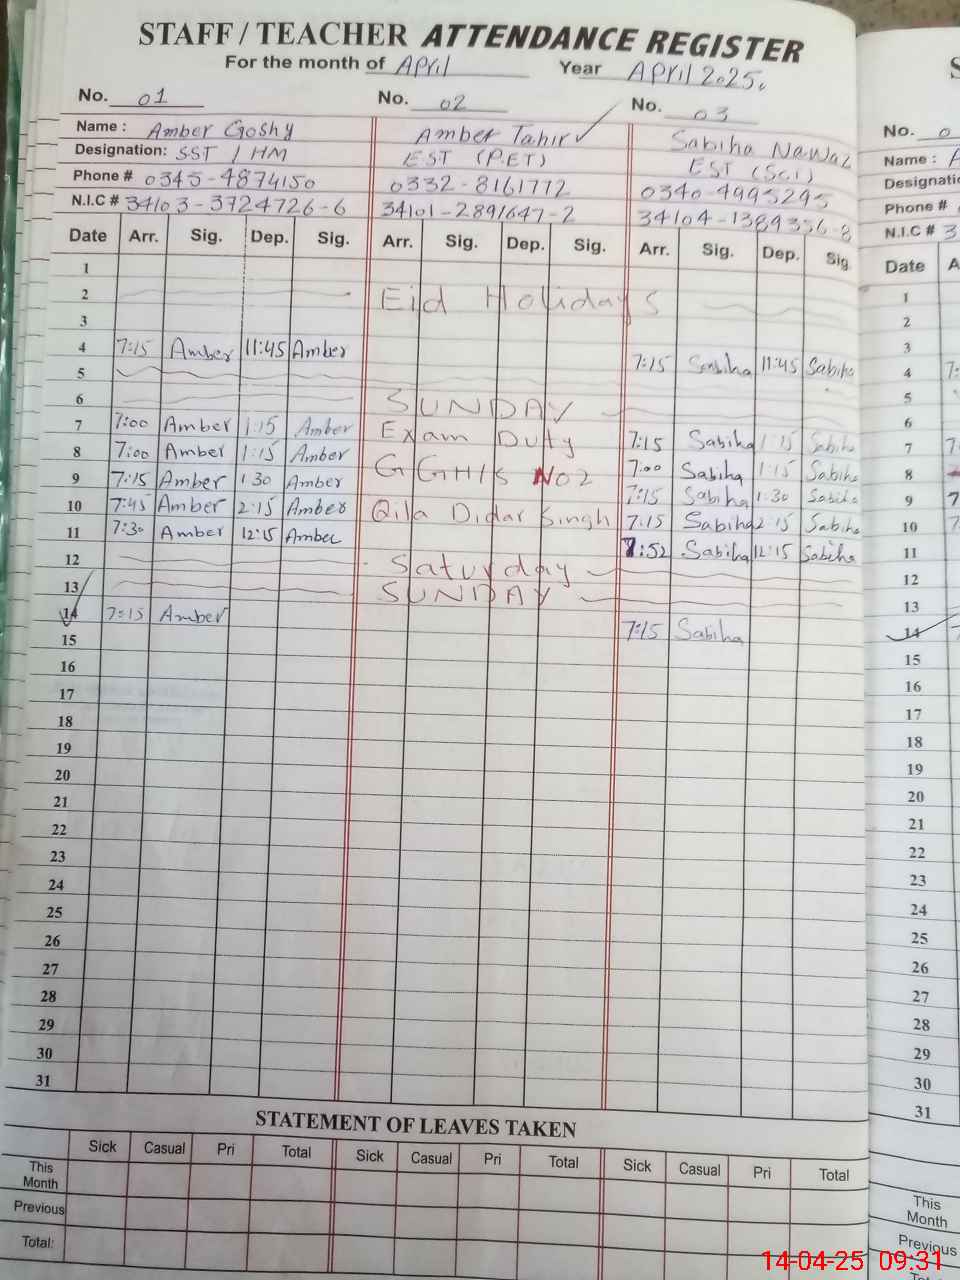 STAFF / TEACHER ATTENDANCE REGISTER
For the month of April Year April 2025.
No. 01 No. 02 No. 03
Name : Amber Goshy Amber Tahir ✓ Sabiha Nawaz
Designation: SST / HM EST (P.ET) EST (Sci)
Phone # 0345-4874150 0332-8161772 0340-4995295
N.I.C # 34103-3724726-6 34101-2891647-2 34104-1389356-8
Date Arr. Sig. Dep. Sig. Arr. Sig. Dep. Sig. Arr. Sig. Dep. Sig
1
2 Eid Holidays
3
4 7:15 Amber 11:45 Amber 7:15 Sabiha 11:45 Sabiha
5
6 SUNDAY
7 7:00 Amber 1:15 Amber Exam Duty 7:15 Sabiha 1:15 Sabiha
8 7:00 Amber 1:15 Amber GGHS No 2 7:00 Sabiha 1:15 Sabiha
9 7:15 Amber 1 30 Amber 7:15 Sabiha 1:30 Sabiha
10 7:45 Amber 2:15 Amber Qila Didar Singh 7:15 Sabiha 2:15 Sabiha
11 7:30 Amber 12:15 Amber 7:52 Sabiha 12:15 Sabiha
12 Saturday
13 SUNDAY
14 7:15 Amber 7:15 Sabiha
15
16
17
18
19
20
21
22
23
24
25
26
27
28
29
30
31
STATEMENT OF LEAVES TAKEN
Sick Casual Pri Total Sick Casual Pri Total Sick Casual Pri Total
This Month
Previous
Total:
S
No. 0
Name :
Designatio
Phone #
N.I.C # 3
Date A
1
2
3
4 7:
5
6
7
8
9
10
11
12
13
14
15
16
17
18
19
20
21
22
23
24
25
26
27
28
29
30
31
This Month
Previous
14-04-25 09:31